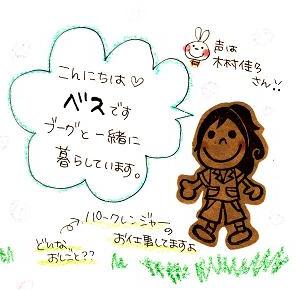 こんにちは♡
ベスです
ブーグと一緒に
暮らしています。
声は
木村佳乃
さん!!
パークレンジャーの
お仕事してますよ
どんな
おしごと??